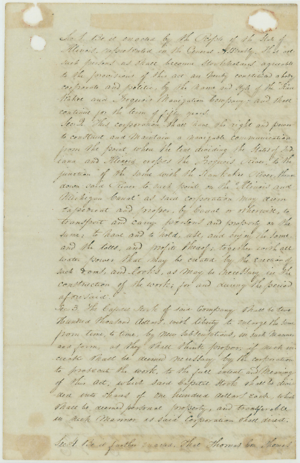 Sec. 1. Be it enacted by the People of the State of
Illinois, represented in the General Assembly, that
such persons as shall become Stockholders agreeable
to the provisions of this act, are hereby constituted a body
corporate and politic, by the name and style of the Kan
kakee and Iroquois Navigation Company; and shall
continue for the term of fifty years.
Sec. 2. The corporation shall have the right and power
to construct and maintain a navigable communication
from the point where the line dividing the States of Indi
ana and Illinois crosses the Iroquois River, to the
junction of the same with the Kankakee River, thence
down said River to such point on the "Illinois and
Michigan Canal" as said corporation may deem
expedient and proper, by canal or slackwater, to
transport and carry persons and property on the
same; to have and to hold, use, and enjoy the same
and the tolls, and profits thereof, together with all
water power that may be created by the erection of
such dams, and Locks, as may be necessary in the
construction of the works, for and during the period
aforesaid.
Sec. 3. The Capital Stock of said Company shall be two
hundred thousand dollars, with liberty to enlarge the same
from time to time, by new subscriptions, in such manner
and form, as they shall think proper, if such in
crease shall be found necessary by the corporation
to prosecute the work, to the full intent and meaning
of this Act, which said Capital Stock shall be divi
ded into shares of one hundred dollars each, which
shall be deemed personal property, and transferable
in such manner as said Corporation shall direct.
Sec. 4. Be it further enacted, That Thomas